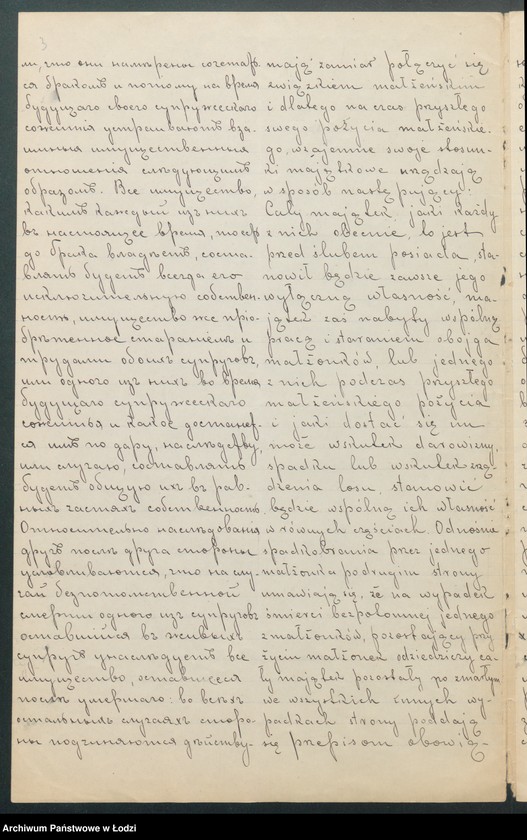 3
ли, что они намѣрены сочетать-
ся бракомъ и потому на время
будущаго своего супружескаго
сожитія устраиваютъ вза-
имныя имущественныя
отношенія слѣдующимъ
образомъ. Все имущество,
какимъ каждый изъ нихъ
въ настоящее время, то есть
до брака владѣетъ, соста-
влять будетъ всегда его
исключительную собствен-
ность, имущество же прiо-
брѣтенное стараніемъ и
трудами обоихъ супруговъ,
или одного изъ нихъ во время
будущаго супружескаго
сожитья и какое достанет-
ся имъ по дару, наслѣдству,
или случаю, составлять
будетъ общую ихъ въ рав-
ныхъ частяхъ собственность.
Относительно наслѣдованія
другъ послѣ друга стороны
условливаются, что на слу-
чай безпотомственной
смерти одного изъ супруговъ
оставшійся въ живыхъ
супругъ унаслѣдуетъ все
имущество, оставшееся
послѣ умершаго: во всѣхъ
остальныхъ случаяхъ сторо-
ны подчиняются дѣйству-
mają zamiar połączyć się
związkiem małżeńskim
i dlatego na czas przyszłego
swego pożycia małżeńskie-
go, wzajemne swoje stosun-
ki majątkowe urządzają
w sposób następujący:
Cały majątek, jaki każdy
z nich obecnie, to jest
przed ślubem posiada, sta-
nowił będzie zawsze jego
wyłączną własność, ma-
jątek zaś nabyty wspólną
pracą i staraniem obojga
małżonków, lub jednego
z nich podczas przyszłego
małżeńskiego pożycia
i jaki dostać się im
może wskutek darowizny,
spadku lub wskutek zrzą-
dzenia losu, stanowić
będzie wspólną ich własność
w równych częściach. Odnośnie
spadkobrania przez jednego
małżonka po drugim strony
umawiają się, że na wypadek
śmierci bezpotomnej jednego
z małżonków, pozostający przy
życiu małżonek odziedziczy ca-
ły majątek pozostały po zmarłym
we wszystkich innych wy-
padkach strony poddają
się przepisom obowią-
Archiwum Państwowe w Łodzi